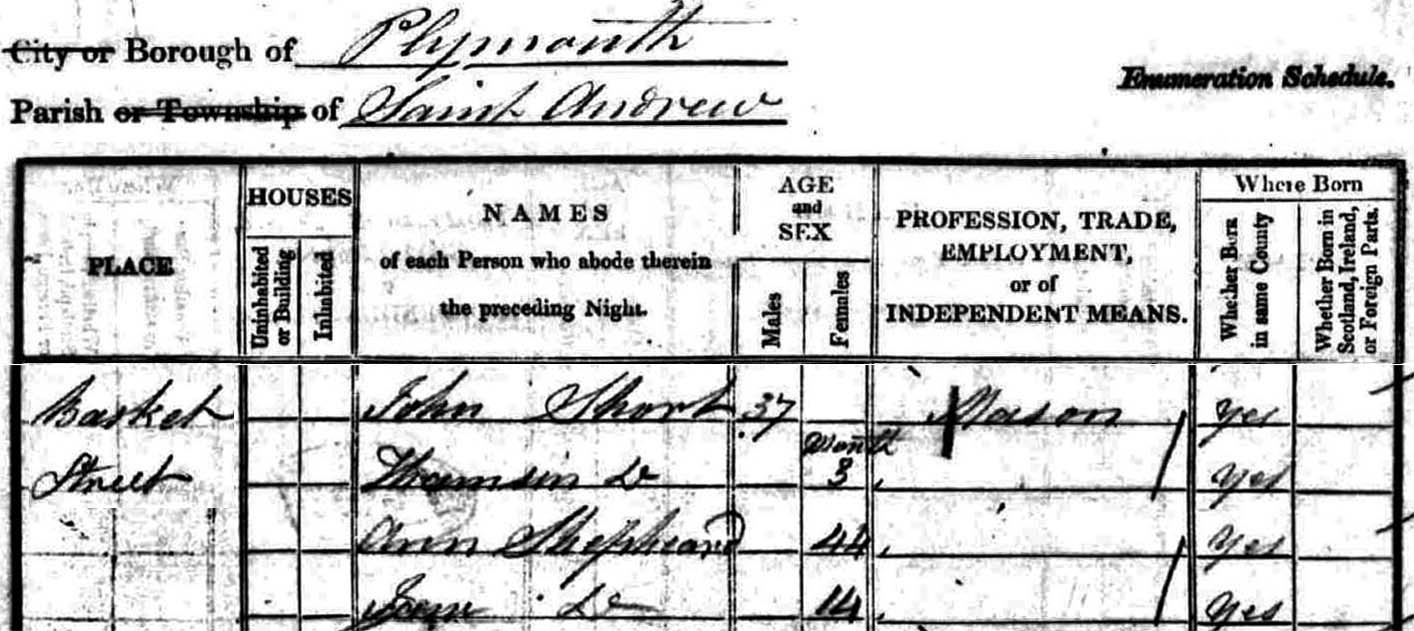 City or Borough of Plymouth
Parish or Township of Saint Andrew
Enumeration Schedule.
PLACE
HOUSES
Uninhabited or Building
Inhabited
NAMES
of each Person who abode therein
the preceding Night.
AGE
and
SEX
Males
Females
PROFESSION, TRADE,
EMPLOYMENT,
or of
INDEPENDENT MEANS.
Where Born
Whether Born in same County
Whether Born in Scotland, Ireland, or Foreign Parts.
Basket John Short 37 Mason yes
Month
Street Thamsin Do 3 yes
Ann Shepheard 44 yes
Jane Do 14 yes